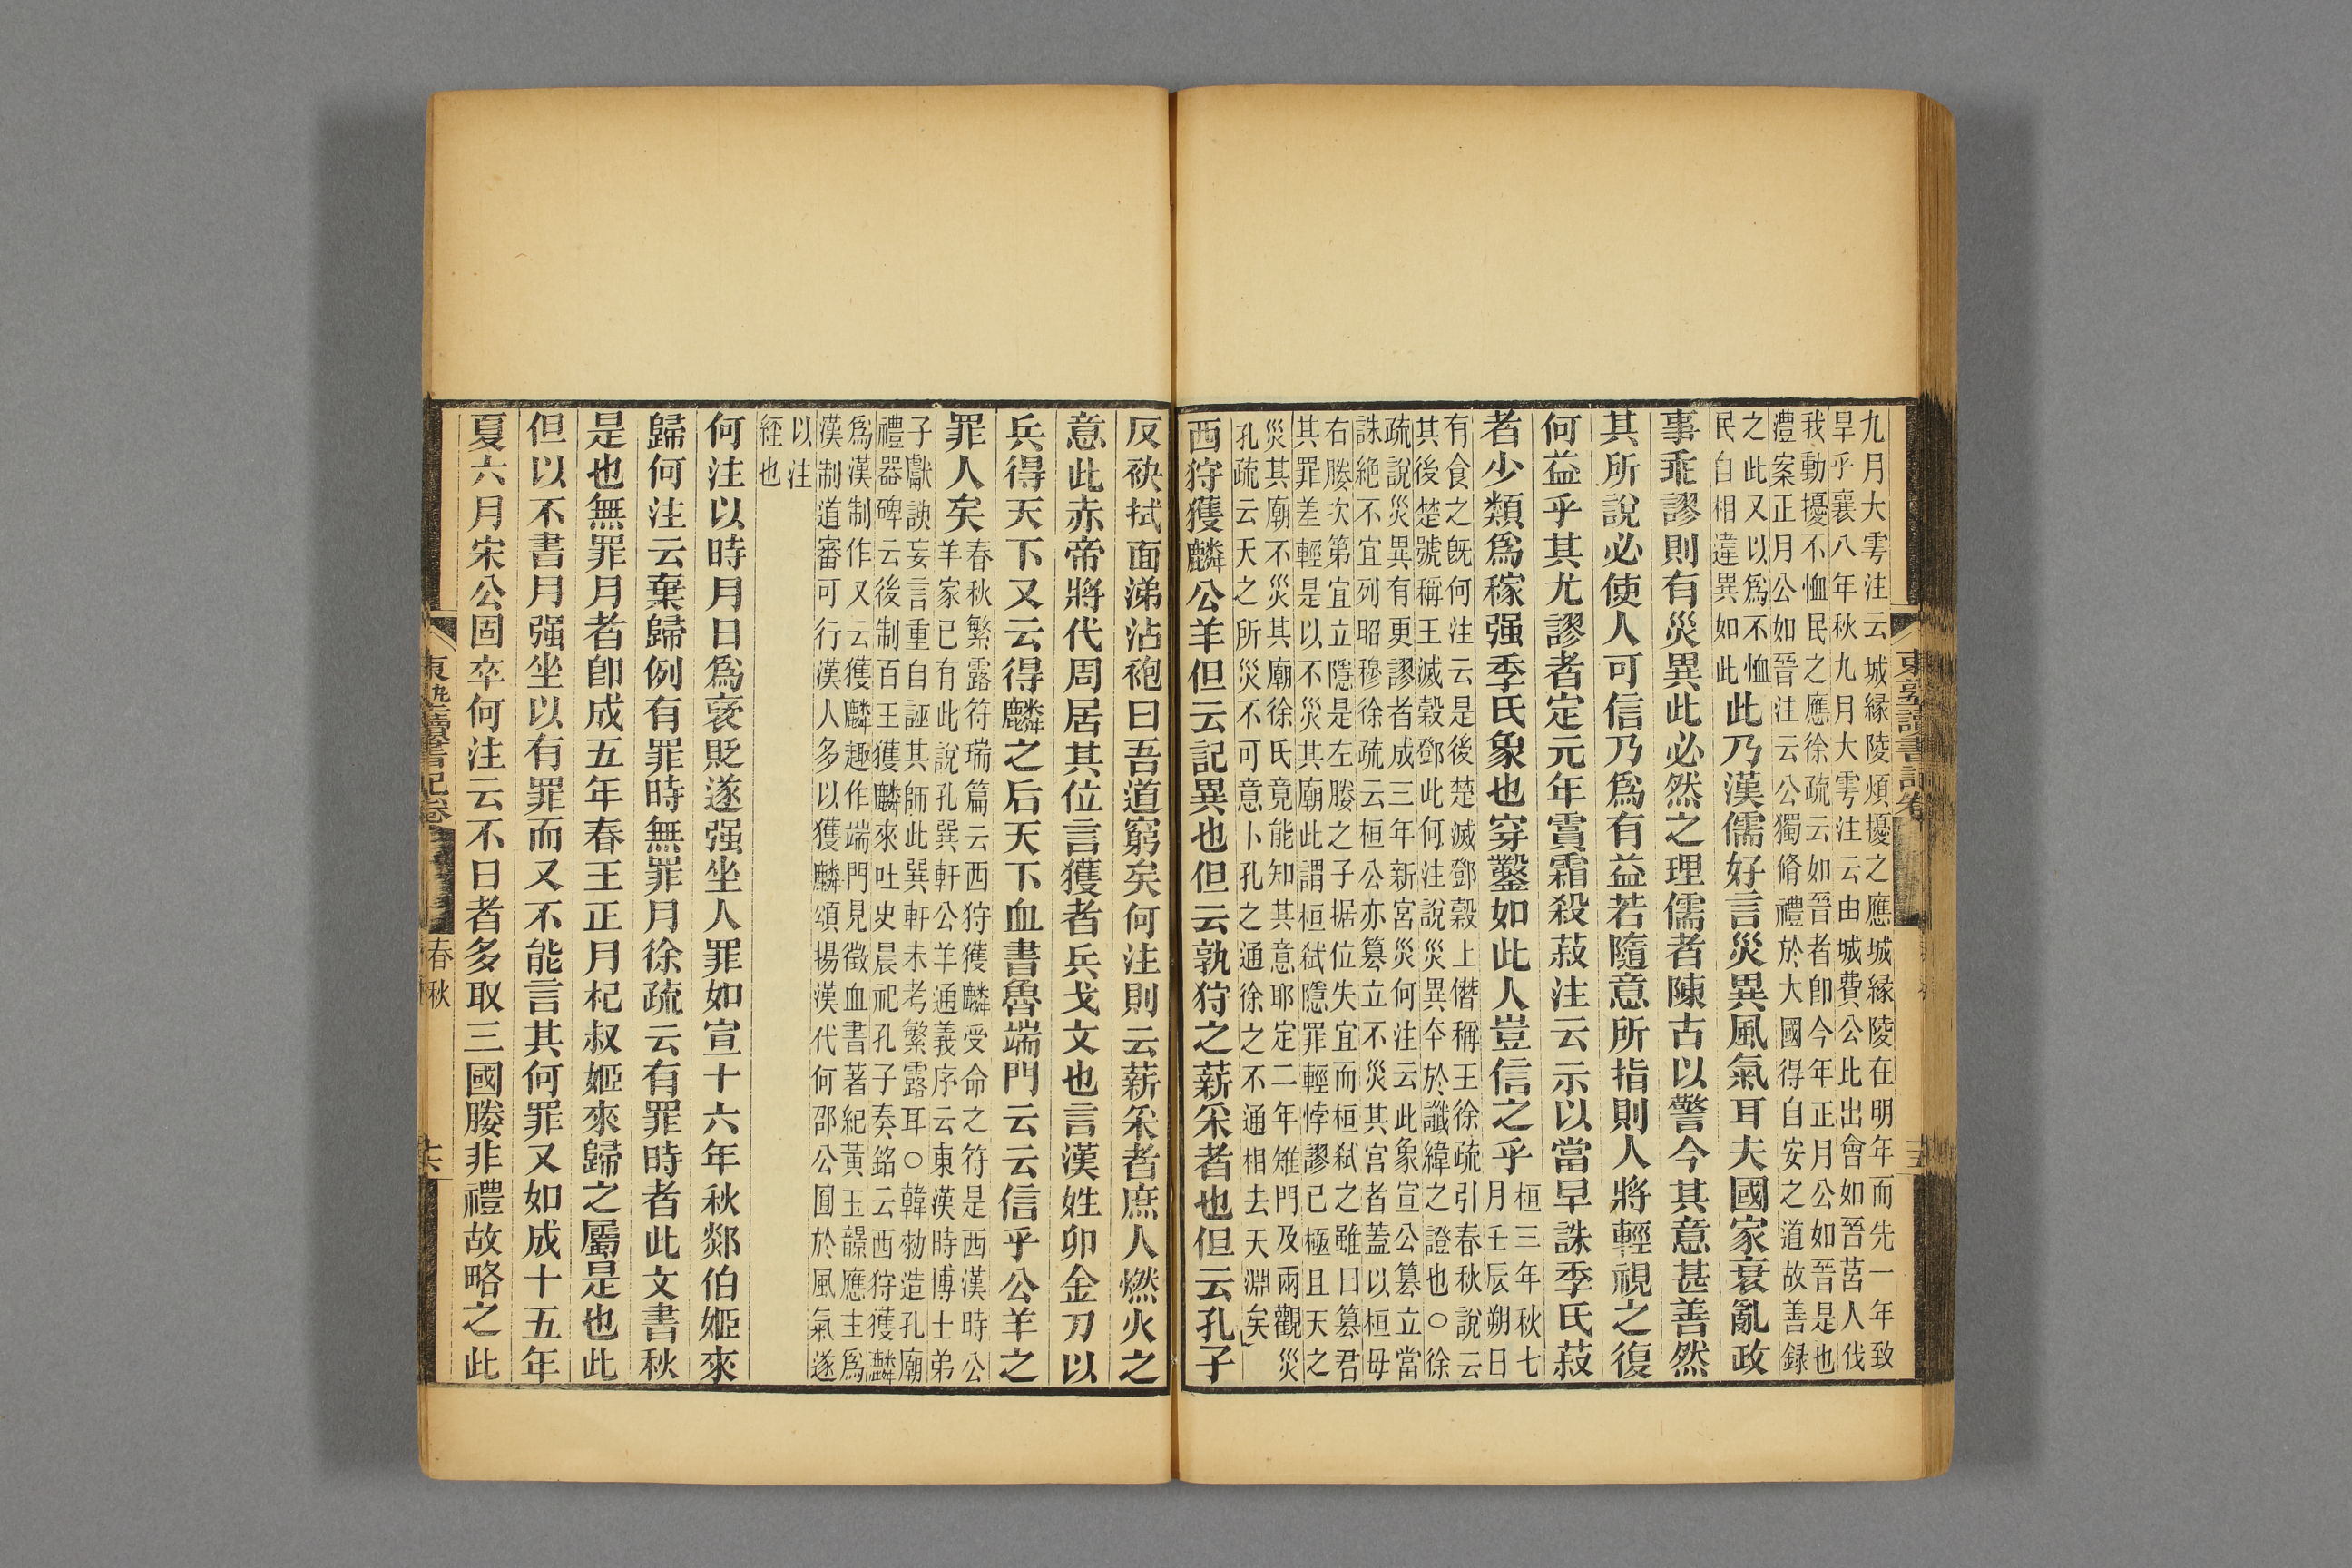 九月大雩注云城緣陵煩擾之應城緣陵在明年而先一年致
旱乎襄八年秋九月大雩注云由城費公比出會如晉莒人伐
我動擾不恤民之應徐疏云如晉者卽今年正月公如晉是也
澧案正月公如晉注云公獨脩禮於大國得自安之道故善錄
之此又以爲不恤
民自相違異如此
此乃漢儒好言災異風氣耳夫國家衰亂政
事乖謬則有災異此必然之理儒者陳古以警今其意甚善然
其所說必使人可信乃爲有益若隨意所指則人將輕視之復
何益乎其尤謬者定元年賞霜殺菽注云示以當早誅季氏菽
者少類爲稼强季氏象也穿鑿如此人豈信之乎
桓三年秋七
月壬辰朔日
有食之旣何注云是後楚滅鄧穀上僭稱王徐疏引春秋說云
其後楚號稱王滅穀鄧此何注說災異夲於讖緯之證也○徐
疏說災異有更謬者成三年新宮災何注云此象宣公篡立當
誅絕不宜列昭穆徐疏云桓公亦篡立不災其宮者蓋以桓母
右媵次第宜立隱是左媵之子据位失宜而桓弒之雖曰篡君
其罪差輕是以不災其廟此謂桓弒隱罪輕悖謬已極且天之
災其廟不災其廟徐氏竟能知其意耶定二年雉門及兩觀災
孔疏云天之所災不可意卜孔之通徐之不通相去天淵矣
西狩獲麟公羊但云記異也但云孰狩之薪采者也但云孔子
反袂拭面涕沾袍曰吾道窮矣何注則云薪采者庶人燃火之
意此赤帝將代周居其位言獲者兵戈文也言漢姓卯金刀以
兵得天下又云得麟之后天下血書魯端門云云信乎公羊之
罪人矣
春秋繁露符瑞篇云西狩獲麟受命之符是西漢時公
羊家已有此說孔巽軒公羊通義序云東漢時博士弟
子獻諛妄言重自誣其師此巽軒未考繁露耳○韓勑造孔廟
禮器碑云後制百王獲麟來吐史晨祀孔子奏銘云西狩獲麟
爲漢制作又云獲麟趣作端門見徵血書著紀黃玉䪫應主爲
漢制道審可行漢人多以獲麟頌揚漢代何邵公囿於風氣遂
以注
經也
何注以時月日爲褒貶遂强坐人罪如宣十六年秋郯伯姬來
歸何注云棄歸例有罪時無罪月徐疏云有罪時者此文書秋
是也無罪月者卽成五年春王正月杞叔姬來歸之屬是也此
但以不書月强坐以有罪而又不能言其何罪又如成十五年
夏六月宋公固卒何注云不日者多取三國媵非禮故略之此
東塾讀書記卷
春秋
十六